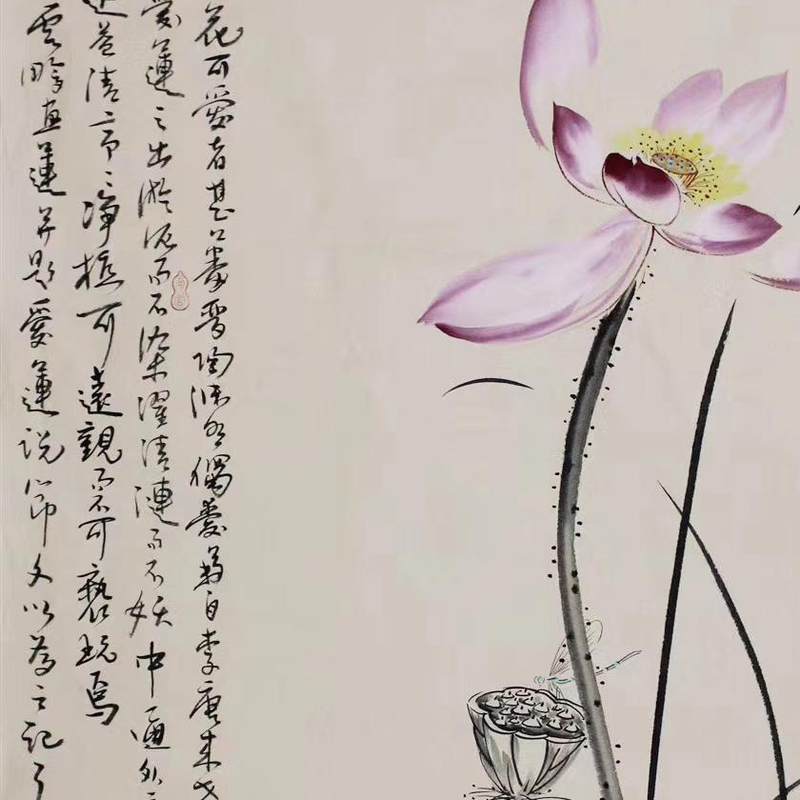 花可爱者甚蕃晋陶渊明独爱菊自李唐来世
爱莲之出淤泥而不染濯清涟而不妖中通外
远益清亭亭净植可远观而不可亵玩焉
画莲并题爱莲说节文以为之记